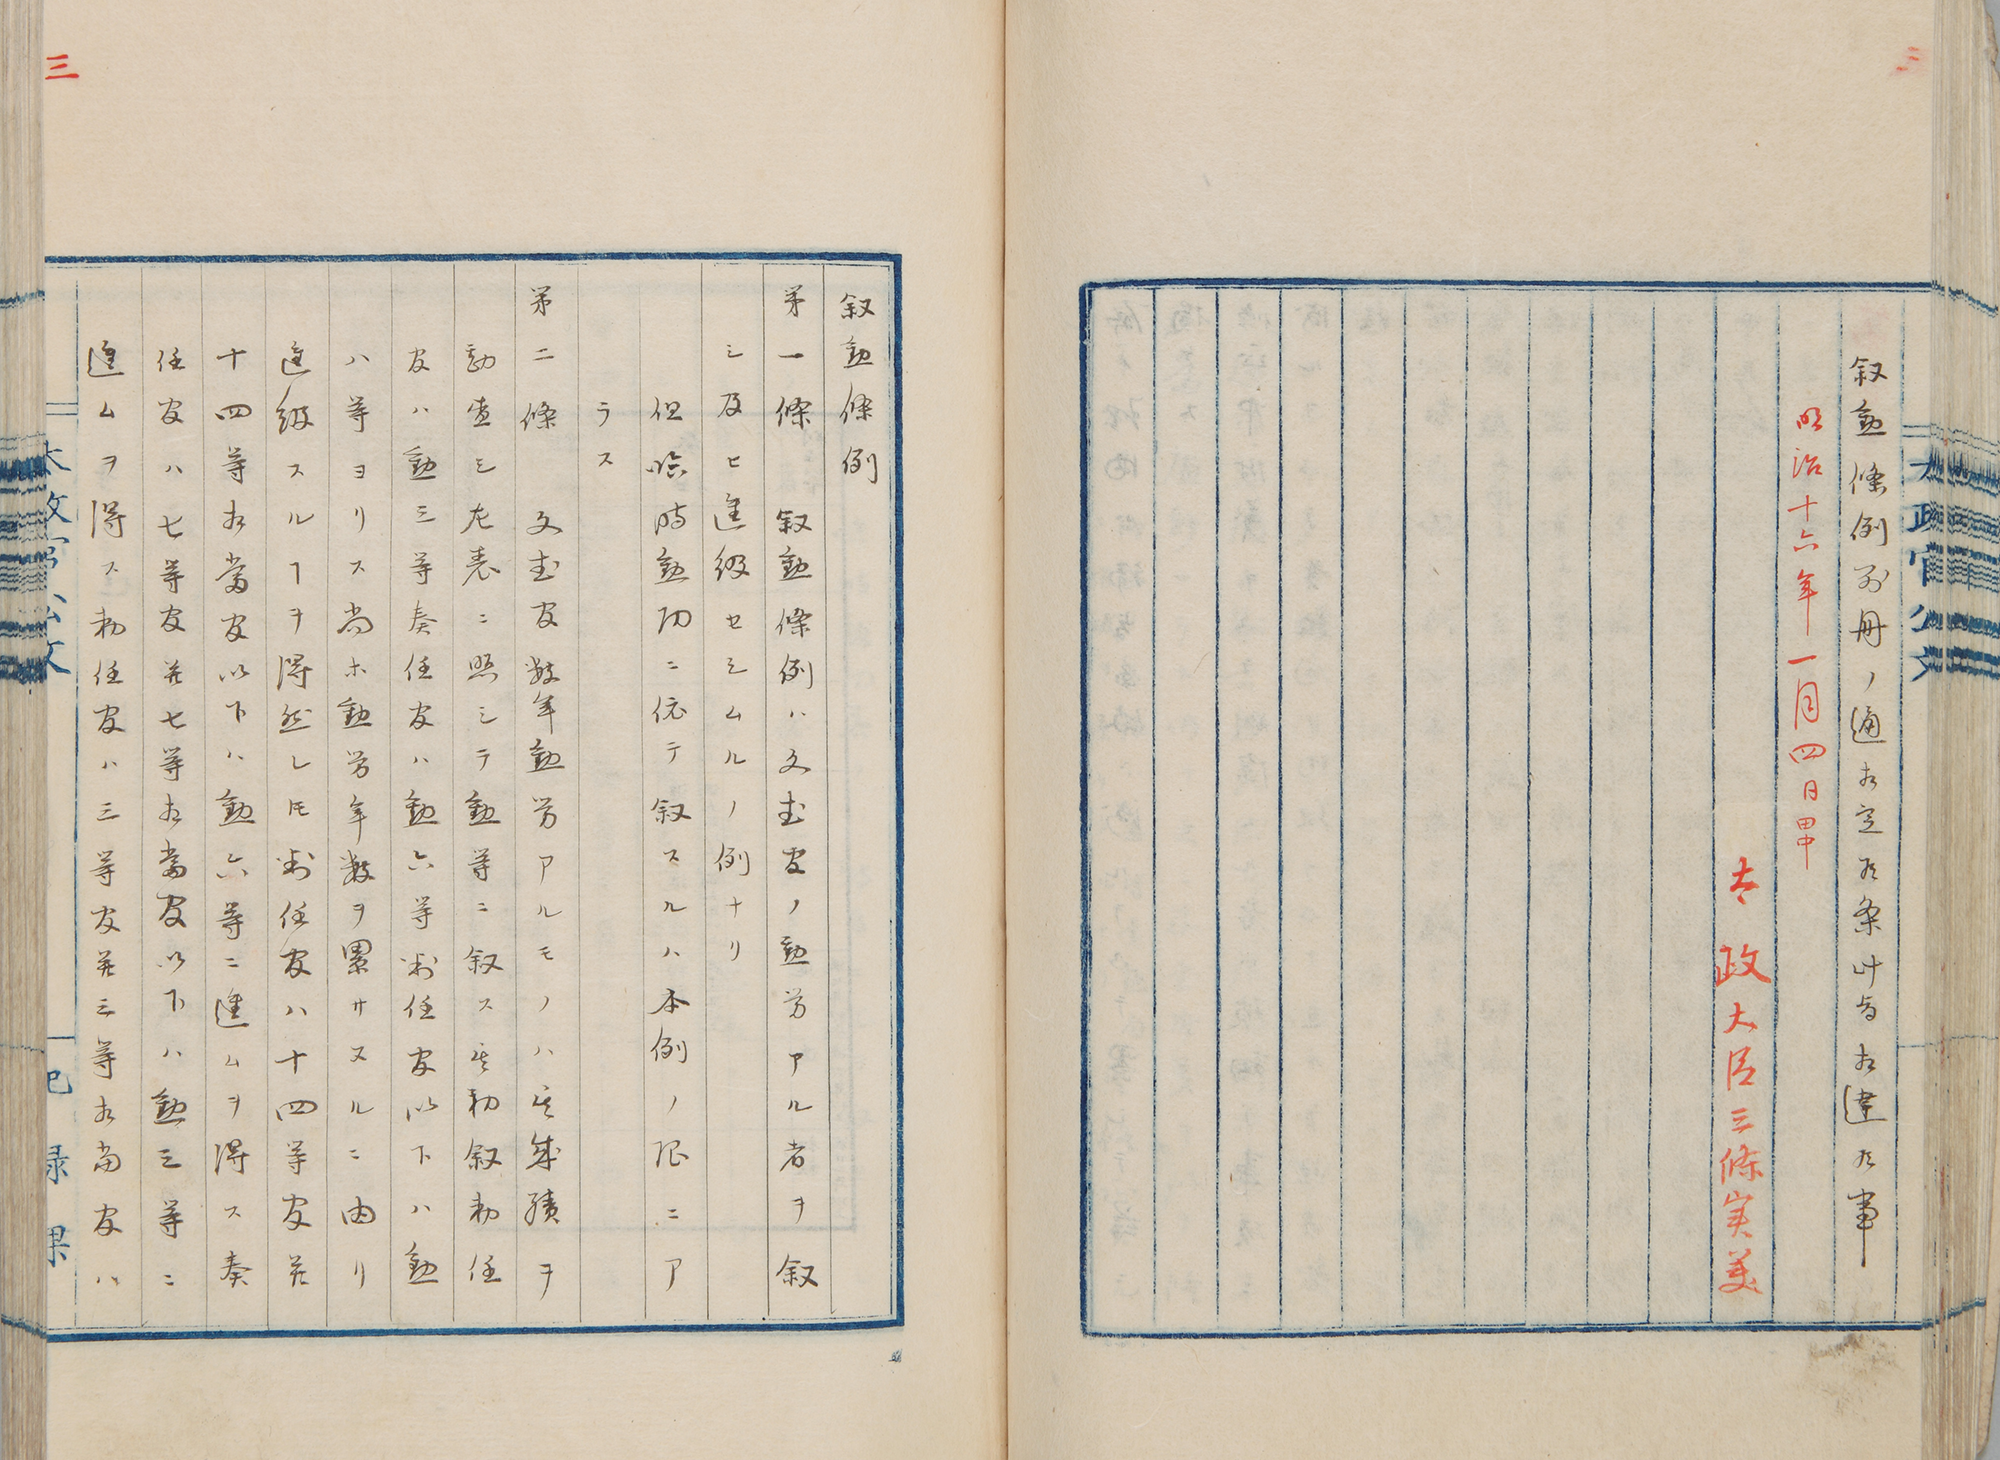 叙勲條例別冊ノ通相定候条此旨相達候事
明治十六年一月四日甲
太政大臣三條実美
太政官公文
三
叙勲條例
第一條 叙勲條例ハ文武官ノ勲労アル者ヲ叙
シ及ヒ進級セシムルノ例ナリ
但臨時勲功ニ依テ叙スルハ本例ノ限ニア
ラス
第二條 文武官数年勲労アルモノハ其成績ヲ
勘査シ左表ニ照シテ勲等ニ叙ス其初叙勅任
官ハ勲三等奏任官ハ勲六等判任官以下ハ勲
八等ヨリス尚ホ勲労年数ヲ累サヌルニ由リ
進級スルヿヲ得然レ𪜈判任官ハ十四等官并
十四等相当官以下ハ勲六等ニ進ムヲ得ス奏
任官ハ七等官并七等相当官以下ハ勲三等ニ
進ムヲ得ス勅任官ハ三等官并三等相当官ハ
太政官公文
記録課